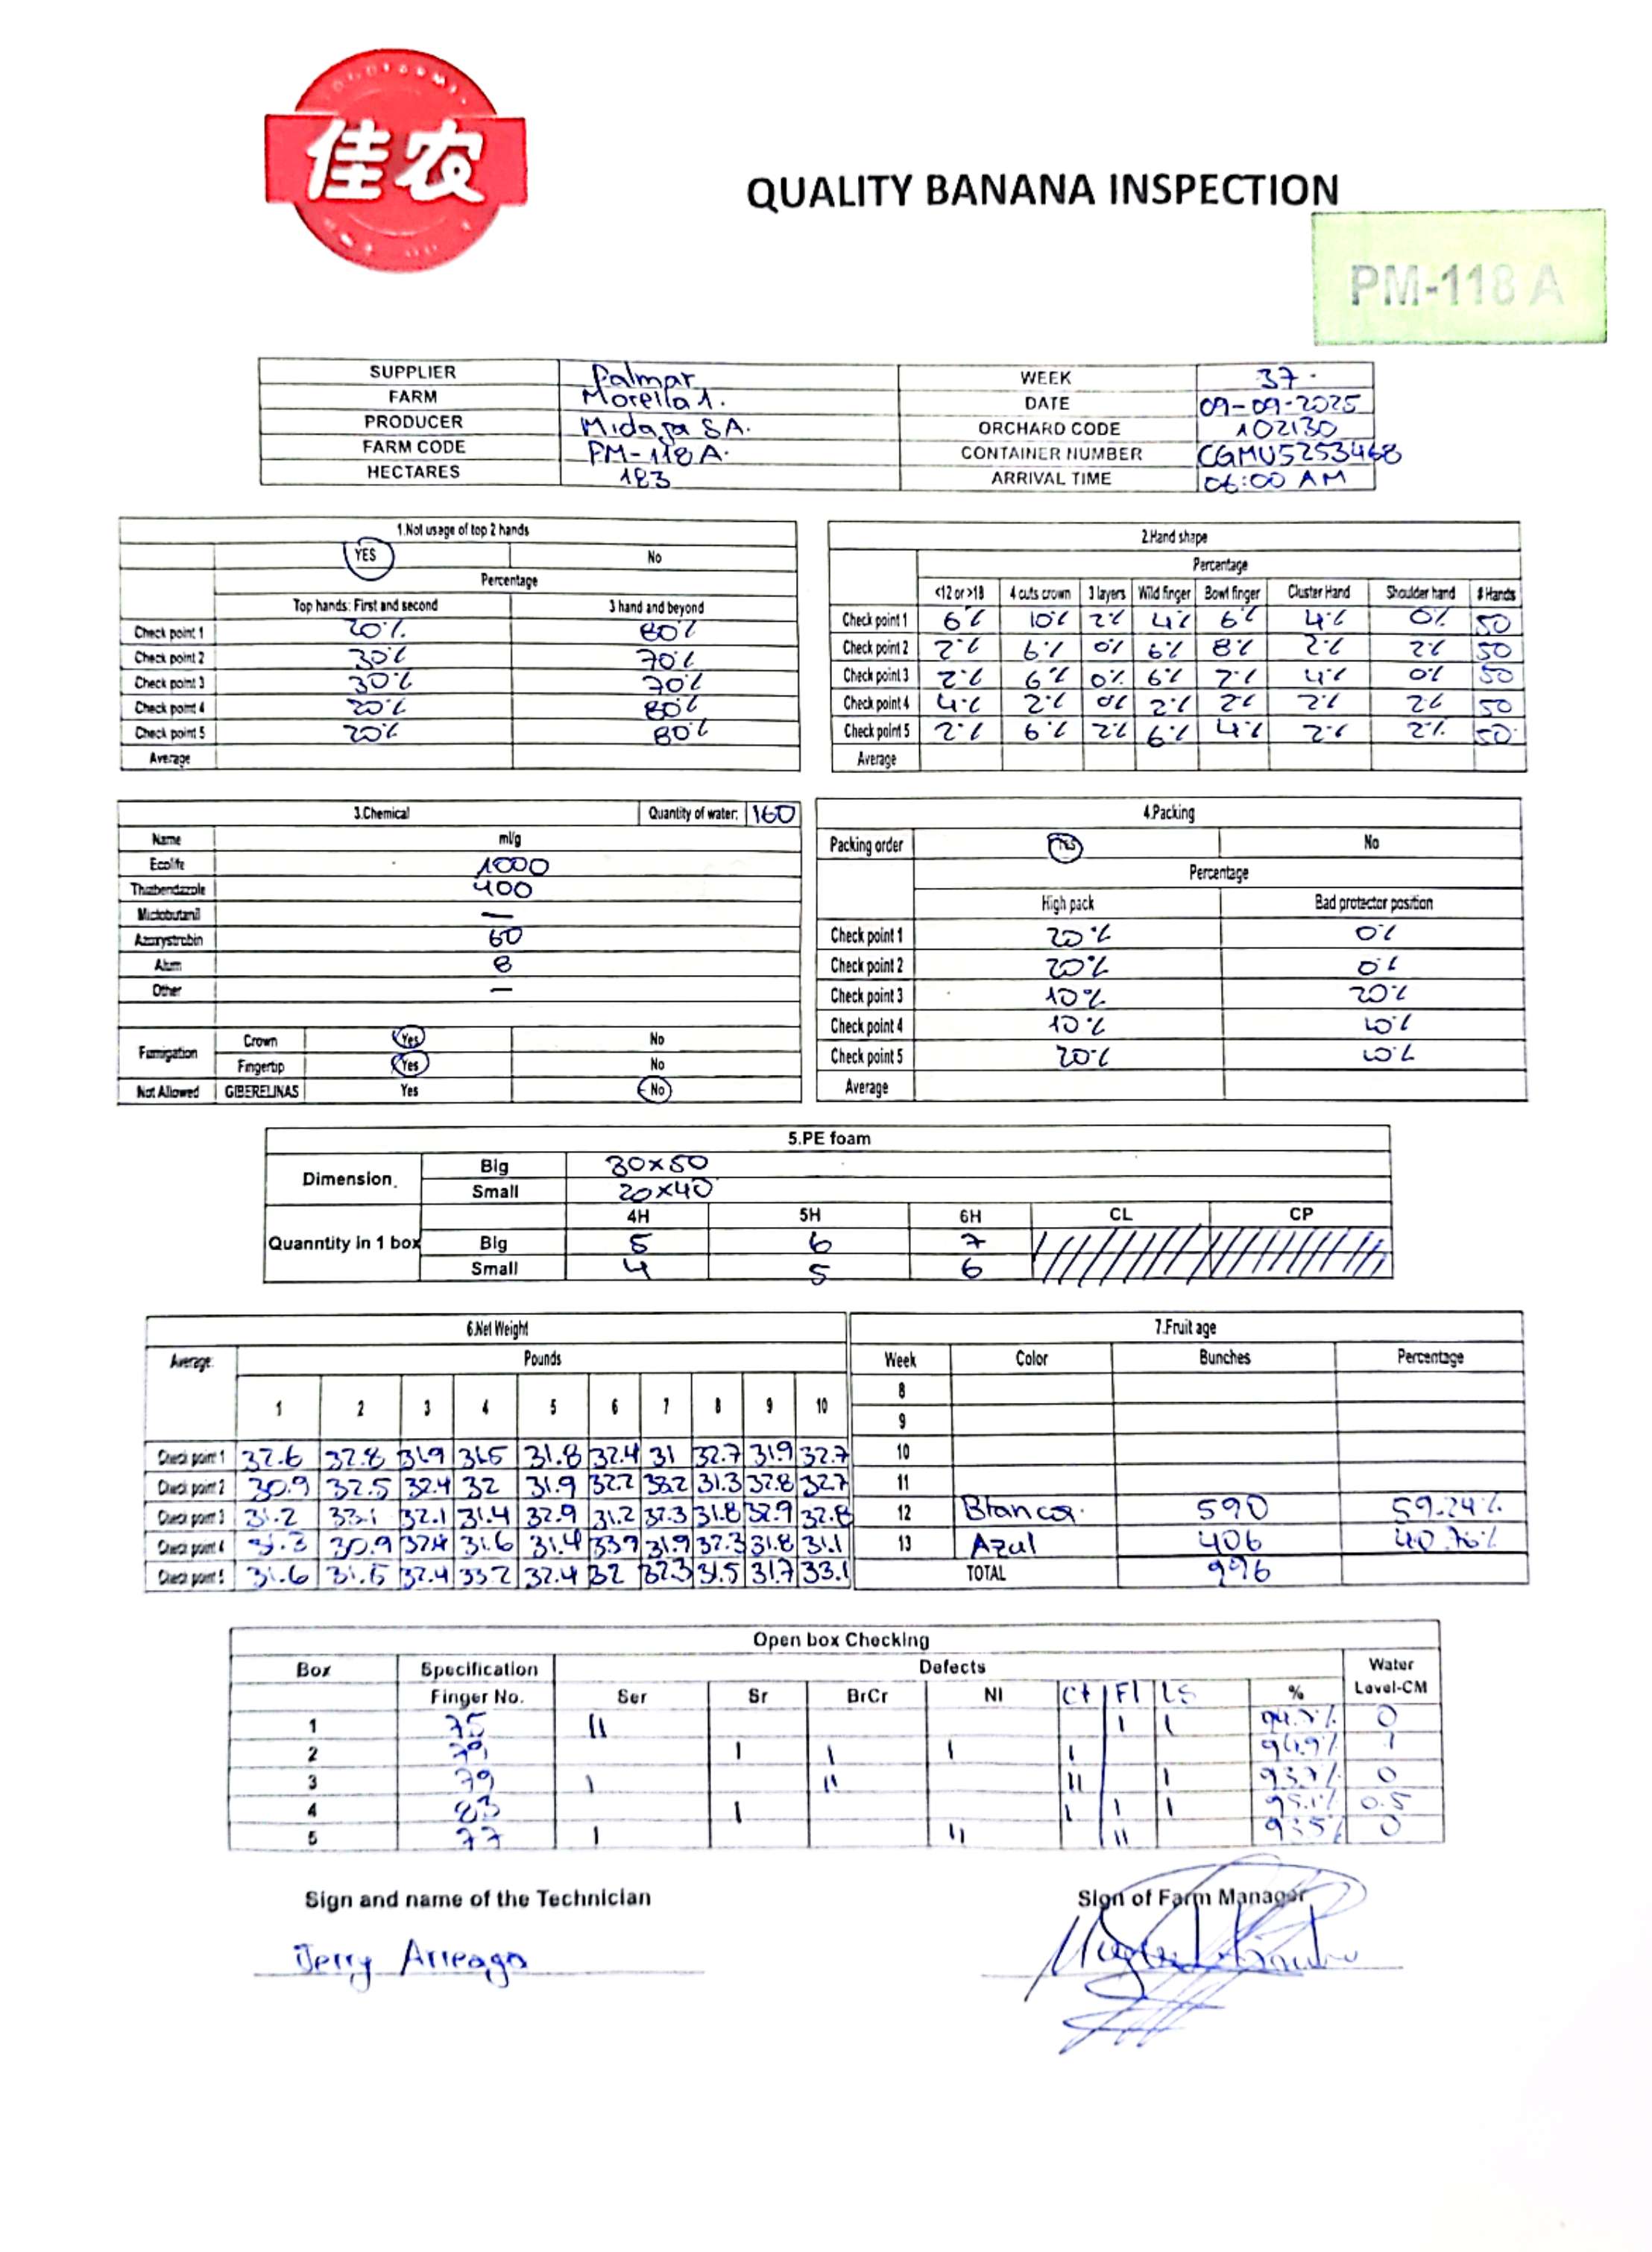 佳农
QUALITY BANANA INSPECTION
PM-118 A
SUPPLIER Palmar WEEK 37.
FARM Morella 1. DATE 09-09-2025
PRODUCER Midaja SA. ORCHARD CODE 102130
FARM CODE PM-118 A. CONTAINER NUMBER CGMU5253468
HECTARES 183 ARRIVAL TIME 06:00 AM
1.Not usage of top 2 hands
YES No
Percentage
Top hands: First and second 3 hand and beyond
Check point 1 20% 80%
Check point 2 30% 70%
Check point 3 30% 70%
Check point 4 20% 80%
Check point 5 20% 80%
Average
2.Hand shape
Percentage
<12 or >18 4 cuts crown 3 layers Wild finger Bowl finger Cluster Hand Shoulder hand # Hands
Check point 1 6% 10% 2% 4% 6% 4% 0% 50
Check point 2 2% 6% 0% 6% 8% 2% 2% 50
Check point 3 2% 6% 0% 6% 2% 4% 0% 50
Check point 4 4% 2% 0% 2% 2% 2% 2% 50
Check point 5 2% 6% 2% 6% 4% 2% 2% 50
Average
3.Chemical Quantity of water: 160
Name ml/g
Ecolife 1000
Thiabendazole 400
Mictobutanil —
Azoxystrobin 60
Alum 8
Other —
Fumigation Crown Yes No
Fingertip Yes No
Not Allowed GIBERELINAS Yes No
4.Packing
Packing order YES No
Percentage
High pack Bad protector position
Check point 1 20% 0%
Check point 2 20% 0%
Check point 3 10% 20%
Check point 4 10% 10%
Check point 5 20% 10%
Average
5.PE foam
Dimension. Big 30x50
Small 20x40
4H 5H 6H CL CP
Quanntity in 1 box Big 5 6 7
Small 4 5 6
6.Net Weight
Average: Pounds
1 2 3 4 5 6 7 8 9 10
Check point 1 32.6 32.8 31.9 31.5 31.8 32.4 31 32.7 31.9 32.7
Check point 2 30.9 32.5 32.4 32 31.9 32.2 31.3 32.8 32.7
Check point 3 31.2 33.1 32.1 31.4 32.9 31.2 32.3 31.8 32.9 32.8
Check point 4 31.3 30.9 32.4 31.6 31.4 31.9 32.3 31.8 31.1
Check point 5 31.6 31.5 32.4 33.2 32.4 32 32.3 31.5 31.7 33.1
7.Fruit age
Week Color Bunches Percentage
8
9
10
11
12 Blanca. 590 59.24%
13 Azul 406 40.76%
TOTAL 996
Open box Checking
Box Specification Defects Water
Finger No. Ser Sr BrCr NI Ct Fl LS % Level-CM
1 75 II I I 0
2 I I I I 94.9% 1
3 79 I II II I 93.7% 0
4 83 I I I I 95.1% 0.5
5 77 I II II 93.5% 0
Sign and name of the Technician Sign of Farm Manager
Jerry Arreaga